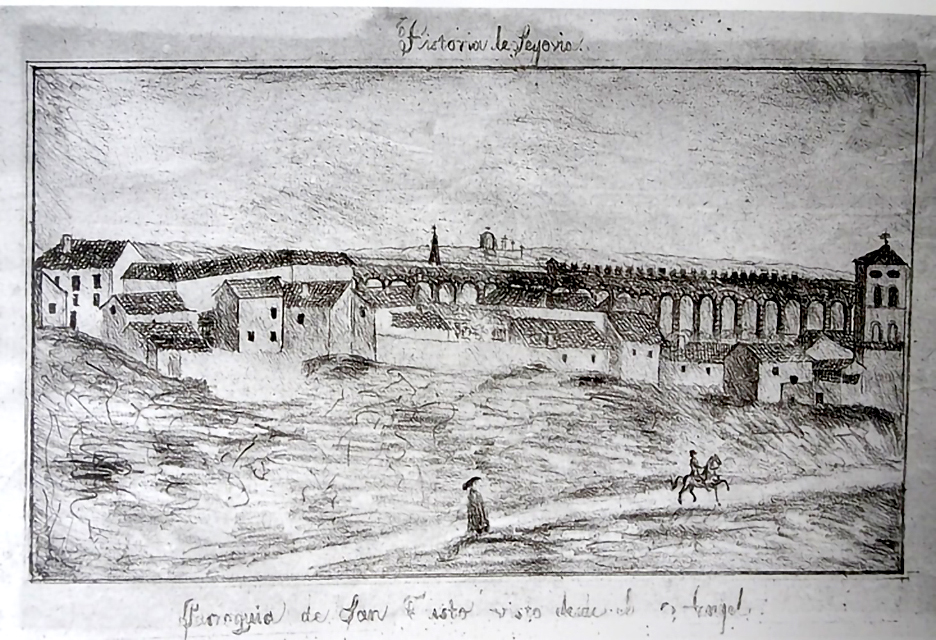 Historia de Segovia.
Parroquia de San visto desde el Angel.